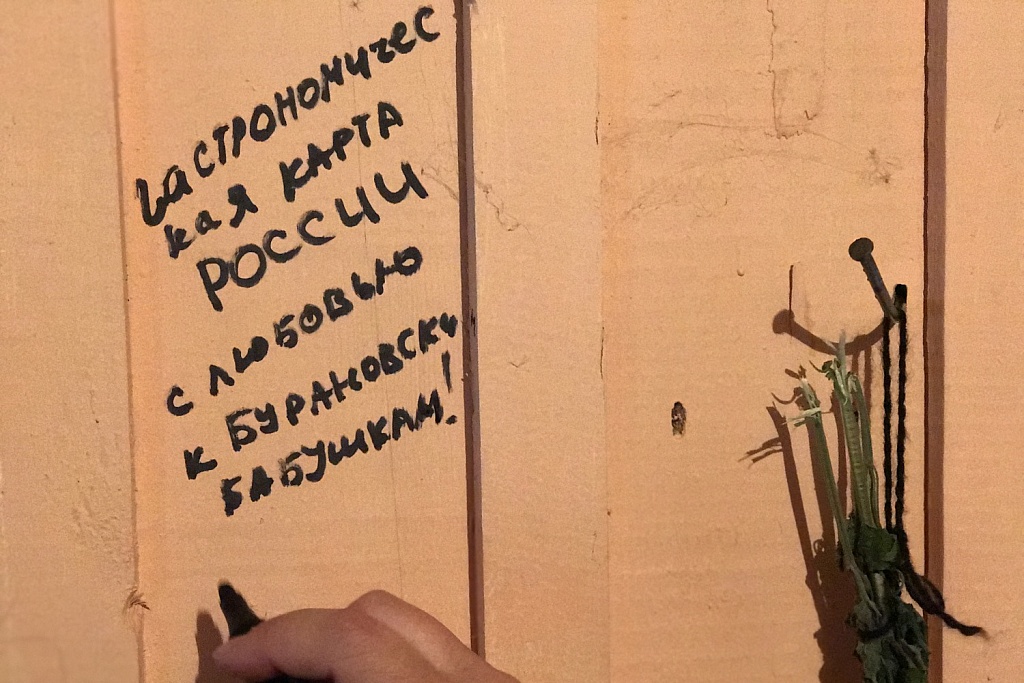 ГАСТРОНОМИЧЕС
КАЯ КАРТА
РОССИИ
С ЛЮБОВЬЮ
К БУРАНОВСКИ
БАБУШКАМ!